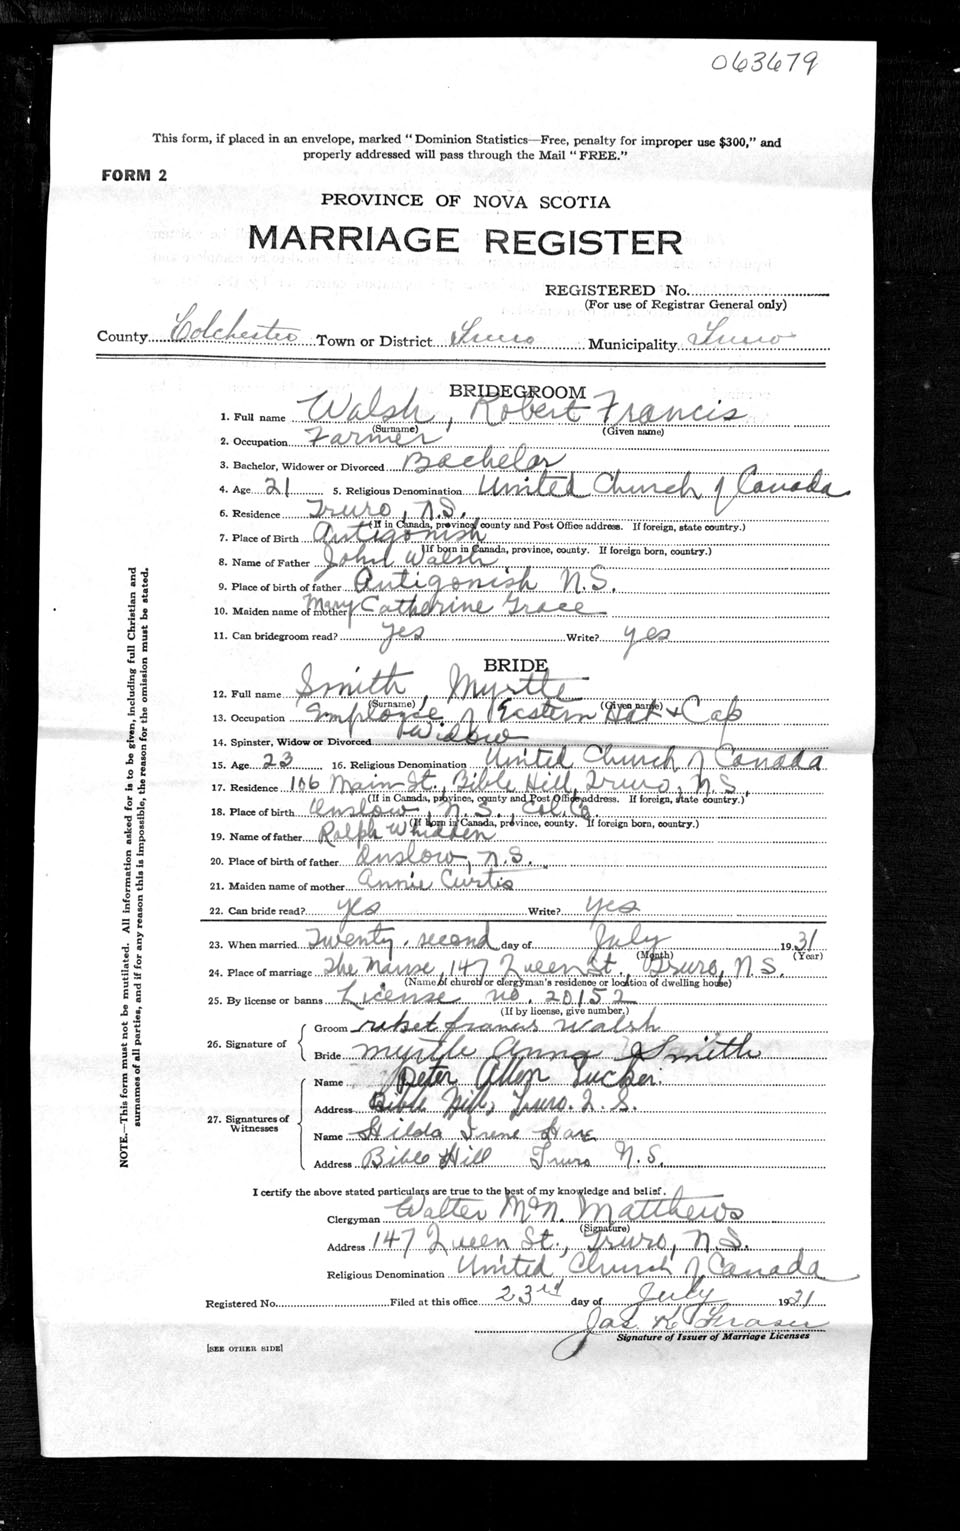 063679
This form, if placed in an envelope, marked "Dominion Statistics—Free, penalty for improper use $300," and
properly addressed will pass through the Mail "FREE."
FORM 2
PROVINCE OF NOVA SCOTIA
MARRIAGE REGISTER
REGISTERED No.
(For use of Registrar General only)
County Colchester Town or District Truro Municipality Truro
BRIDEGROOM
1. Full name Walsh, Robert Francis
(Surname) (Given name)
2. Occupation Farmer
3. Bachelor, Widower or Divorced Bachelor
4. Age 21 5. Religious Denomination United Church of Canada
6. Residence Truro, N.S.
(If in Canada, province, county and Post Office address. If foreign, state country.)
7. Place of Birth Antigonish
(If born in Canada, province, county. If foreign born, country.)
8. Name of Father John Walsh
9. Place of birth of father Antigonish N.S.
10. Maiden name of mother Mary Catherine Grace
11. Can bridegroom read? yes Write? yes
BRIDE
12. Full name Smith, Myrtle
(Surname) (Given name)
13. Occupation Employee of Eastern Hat & Cap
14. Spinster, Widow or Divorced Widow
15. Age 23 16. Religious Denomination United Church of Canada
17. Residence 106 Main St., Bible Hill, Truro, N.S.
(If in Canada, province, county and Post Office address. If foreign, state country.)
18. Place of birth Onslow, N.S., Colc.
(If born in Canada, province, county. If foreign born, country.)
19. Name of father Ralph Whidden
20. Place of birth of father Onslow, N.S.
21. Maiden name of mother Annie Curtis
22. Can bride read? yes Write? yes
23. When married Twenty-second day of July 1931
(Month) (Year)
24. Place of marriage The Manse, 147 Queen St., Truro, N.S.
(Name of church or clergyman's residence or location of dwelling house)
25. By license or banns License no. 20152
(If by license, give number.)
26. Signature of Groom robet francis walsh
Bride myrtle Anna Smith
27. Signatures of Witnesses Name Peter Allen Tucker.
Address Bible Hill, Truro. N.S.
Name Hilda Irene
Address Bible Hill Truro N.S.
I certify the above stated particulars are true to the best of my knowledge and belief.
Clergyman Walter McN. Matthews
(Signature)
Address 147 Queen St., Truro, N.S.
Religious Denomination United Church of Canada
Registered No. Filed at this office 23rd day of July 1931
Jas K Fraser
Signature of Issuer of Marriage Licenses
[SEE OTHER SIDE]
NOTE.—This form must not be mutilated. All information asked for is to be given, including full Christian and
surnames of all parties, and if for any reason this is impossible, the reason for the omission must be stated.